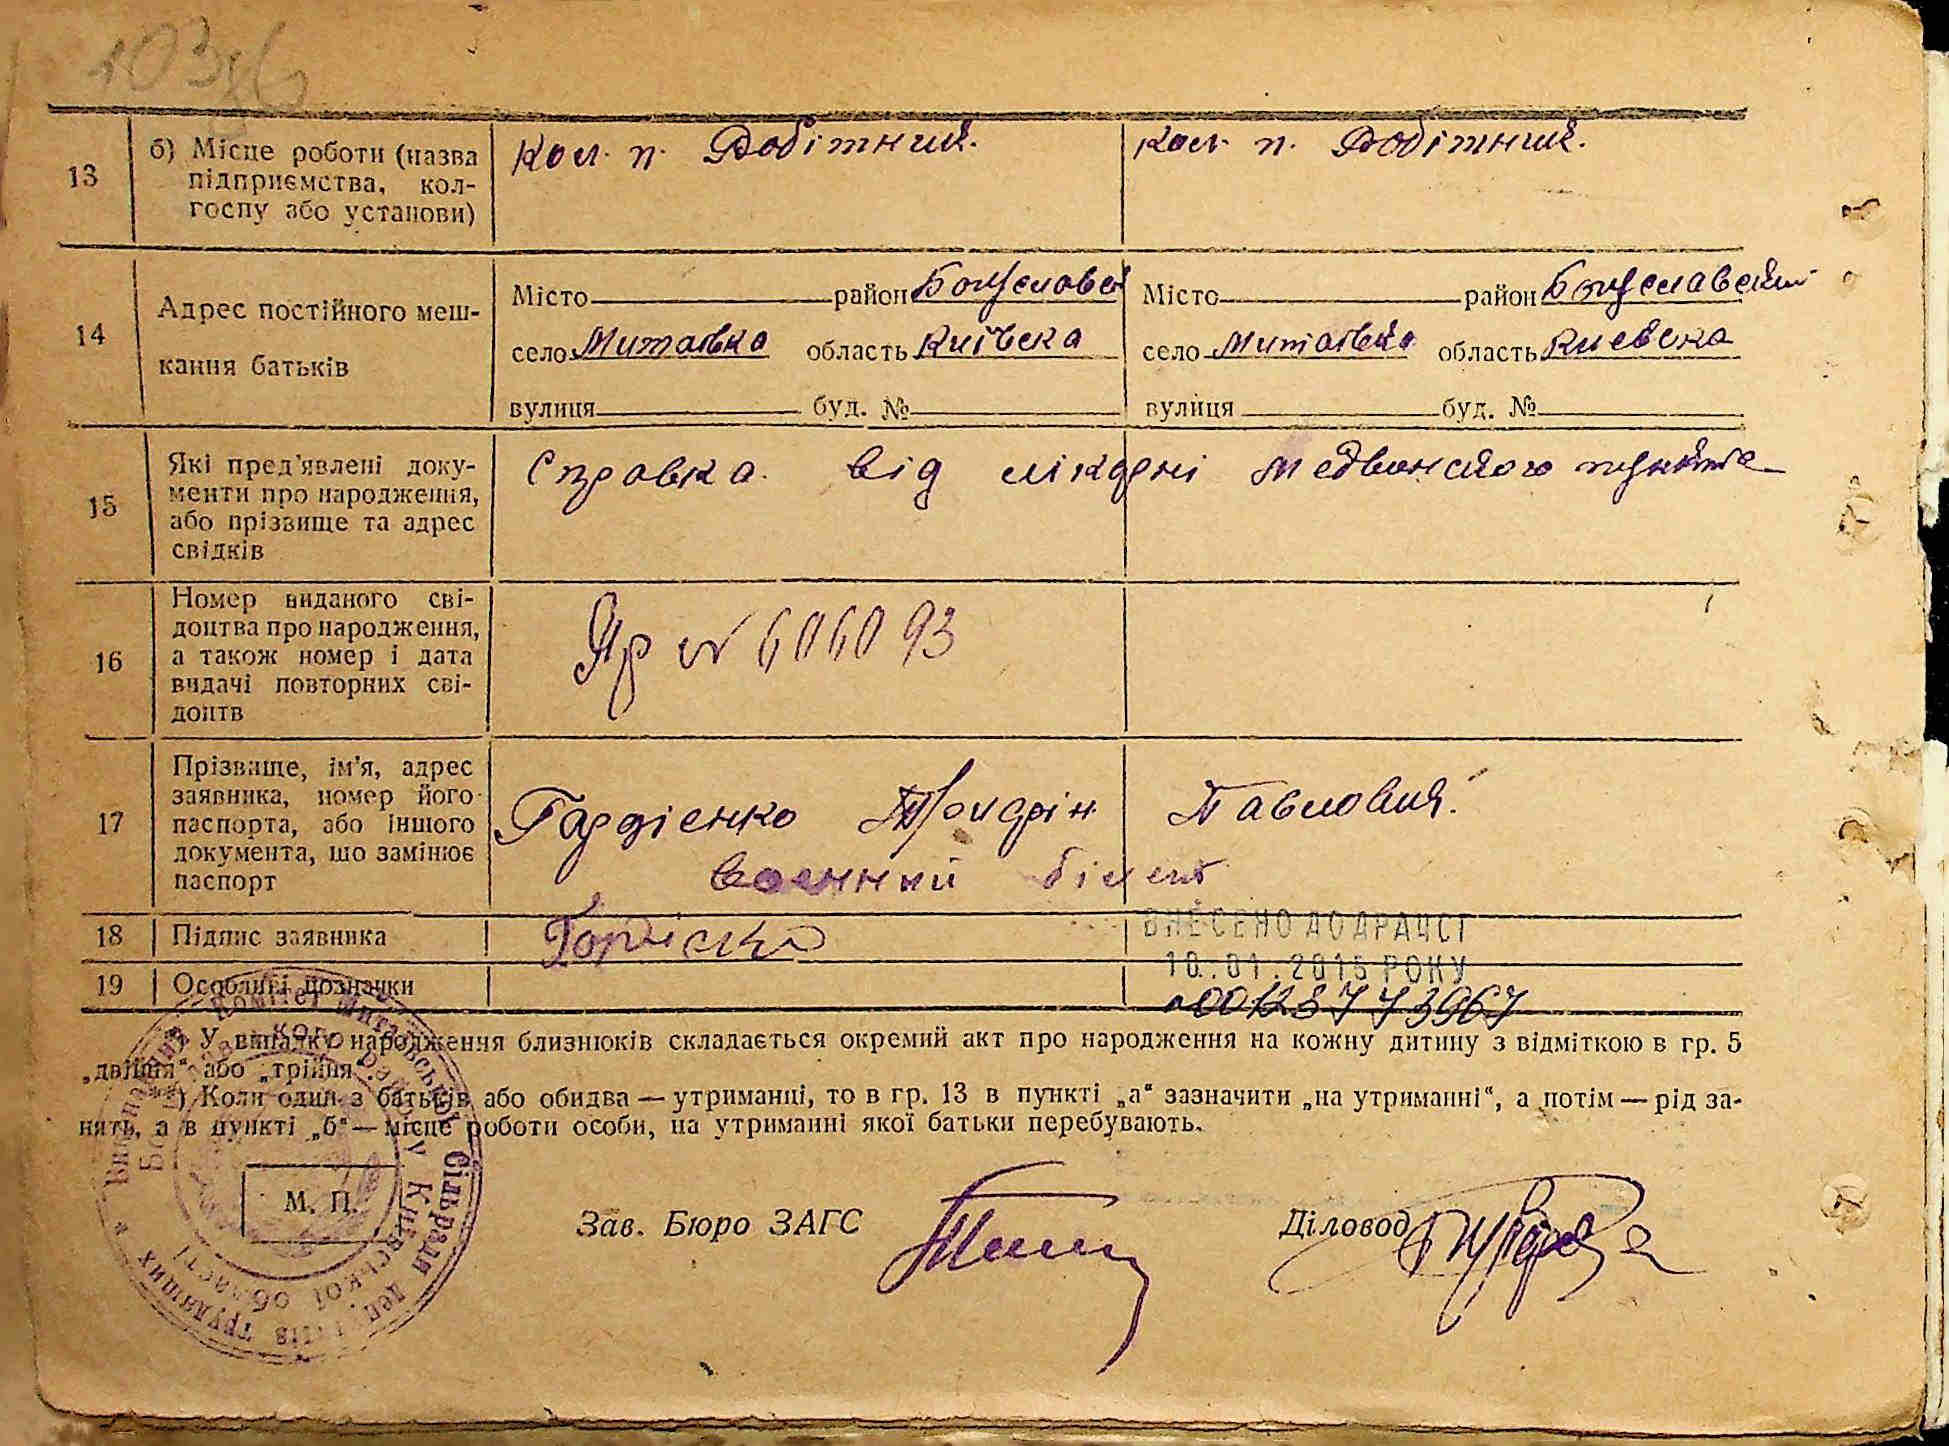 13
б) Місце роботи (назва
підприємства, кол-
госпу або установи)
Кол. п. Робітний.
Кол. п. Робітний.
14
Адрес постійного меш-
кання батьків
Місто район Богуславс
село Митаєвка область Київска
вулиця буд. №
Місто район Богуславский
село Митаєвка область Киевска
вулиця буд. №
15
Які пред'явлені доку-
менти про народження,
або прізвище та адрес
свідків
Справка від лікарні
16
Номер виданого сві-
доцтва про народження,
а також номер і дата
видачі повторних сві-
доцтв
№ 606093
17
Прізвище, ім'я, адрес
заявника, номер його
паспорта, або іншого
документа, що замінює
паспорт
Гардієнко Павлович
военний білет
18
Підпис заявника
19
Особливі позначки
ВНЕСЕНО ДО ДРАЦСГ
10.01.2015 РОКУ
У випадку народження близнюків складається окремий акт про народження на кожну дитину з відміткою в гр. 5
„двійня“ або „трійня
) Коли один з батьків або обидва — утриманці, то в гр. 13 в пункті „а“ зазначити „на утриманні“, а потім — рід за-
нять, а в пункті „б“ — місце роботи особи, на утриманні якої батьки перебувають.
М. П.
Зав. Бюро ЗАГС
Діловод
Виконавчий Комітет Митаївської Сільради Деп.тів трудящих
Київської області